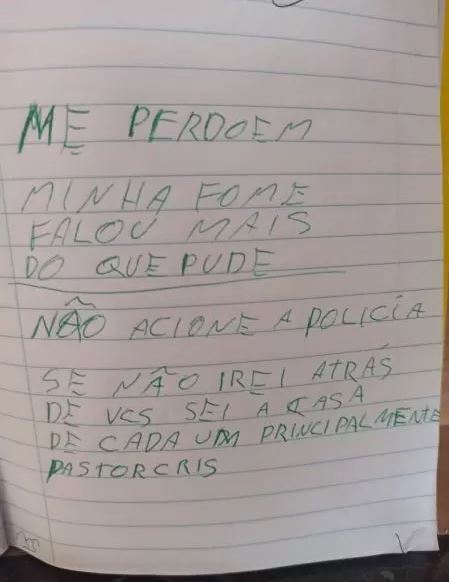 ME PERDOEM
MINHA FOME
FALOU MAIS
DO QUE PUDE
NÃO ACIONE A POLICÍA
SE NÃO IREI ATRÁS
DE VCS SEI A CASA
DE CADA UM PRINCIPALMENTE
PASTORCRIS